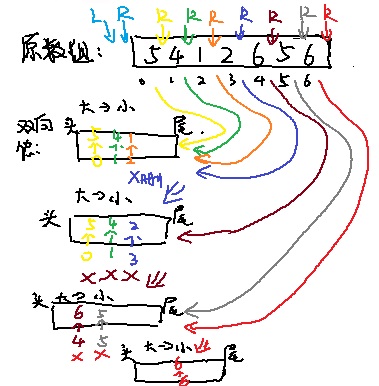 L R R R R R R R R
原数组: 5 4 1 2 6 5 6
0 1 2 3 4 5 6
大→小
双向 头 5 4 1 尾
0 1 2
大→小
头 5 4 2 尾
0 1 3
x x x
头 大→小 尾
6 5
4 5
x x
头 大→小 尾
6
6